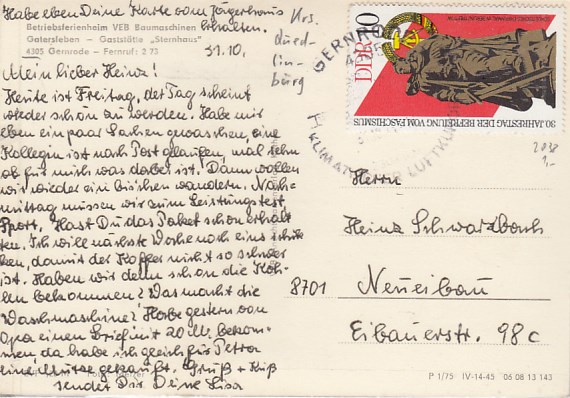 Habe eben Deine Karte vom Jägerhaus
erhalten.
Betriebsferienheim VEB Baumaschinen
Gatersleben - Gaststätte „Sternhaus"
4305 Gernrode - Fernruf: 2 73
31.10.
Krs.
Qued-
lin-
burg
Mein lieber Heinz!
Heute ist Freitag, der Tag scheint
wieder schön zu werden. Habe mit
eben ein paar Sachen gewaschen, eine
Kollegin ist nach Post gelaufen, mal sehn
ob für mich was dabei ist. Dann wollen
wir wieder ein bißchen wandern. Nach-
mittag müssen wir zum Leistungstest,
Sport, Hast Du das Paket schon erhal-
ten. Ich will nächste Woche noch eins schik-
ken, damit der Koffer nicht so schwer
ist. Haben wir denn schon die Koh-
len bekommen? Was macht die
Waschmaschine? Habe gestern von
Opa einen Brief mit 20 M. bekom-
men, da habe ich gleich für Petra
eine Mütze gekauft. Gruß + Kuß
sendet Dir Deine Lisa
GERNRO
KLIMAT LUFTKU
DDR 10
30. JAHRESTAG DER BEFREIUNG VOM FASCHISMUS
2038
1,-
Herrn
Heinz Schwarzbach
8701 Neueibau
Eibauerstr. 98c
P 1/75 IV-14-45 06 08 13 143